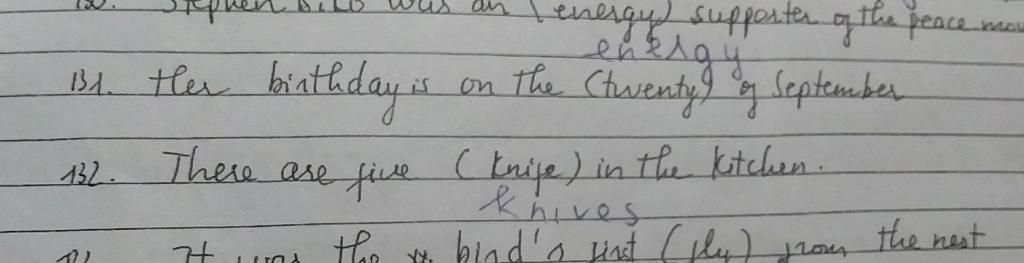 130. Stephen Biko was an (energy) supporter of the peace mov
energy
131. Her birthday is on the (twenty) of September
132. There are five (knife) in the kitchen.
knives
It was the bird's first (fly) from the nest